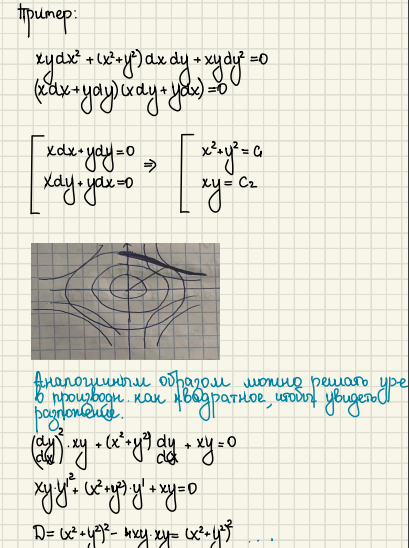 Пример:
xydx² + (x²+y²)dxdy + xydy² = 0
(xdx+ydy)(xdy+ydx) = 0
[ xdx+ydy=0 ⇒ [ x²+y² = C₁
xdy+ydx=0 xy = C₂
Аналогичным образом можно решать уре
в производн. как квадратное, чтобы увидеть
разложение.
(dy/dx)² · xy + (x²+y²) dy/dx + xy = 0
xy·y'² + (x²+y²)·y' + xy = 0
D = (x²+y²)² - 4xy·xy = (x²+y²)² ...